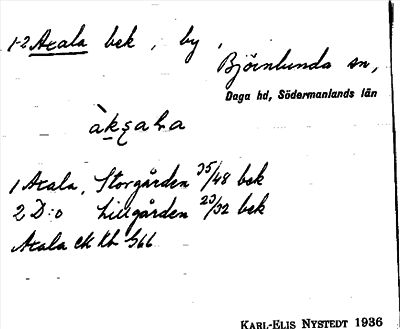 1-2 Axala bek, by,
Björnlunda sn,
Daga hd, Södermanlands län
àkṣaLa
1 Axala, Storgården 35/48 bek
2 D:o Lillgården 23/32 bek
Axala ek kb 566
KARL-ELIS NYSTEDT 1936